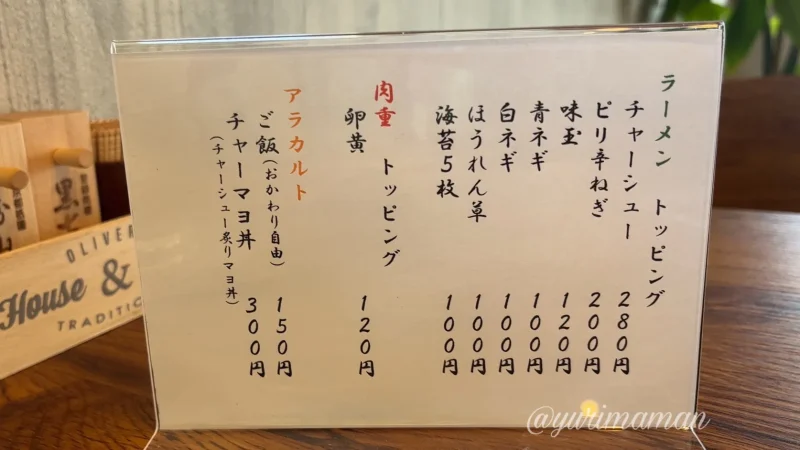 ラーメン トッピング
チャーシュー 280円
ピリ辛ねぎ 200円
味玉 120円
青ネギ 100円
白ネギ 100円
ほうれん草 100円
海苔5枚 100円
肉重 トッピング
卵黄 120円
アラカルト
ご飯(おかわり自由) 150円
チャーマヨ丼 300円
(チャーシュー炙りマヨ丼)
OLIVER
House &
TRADITIO
@yurimaman